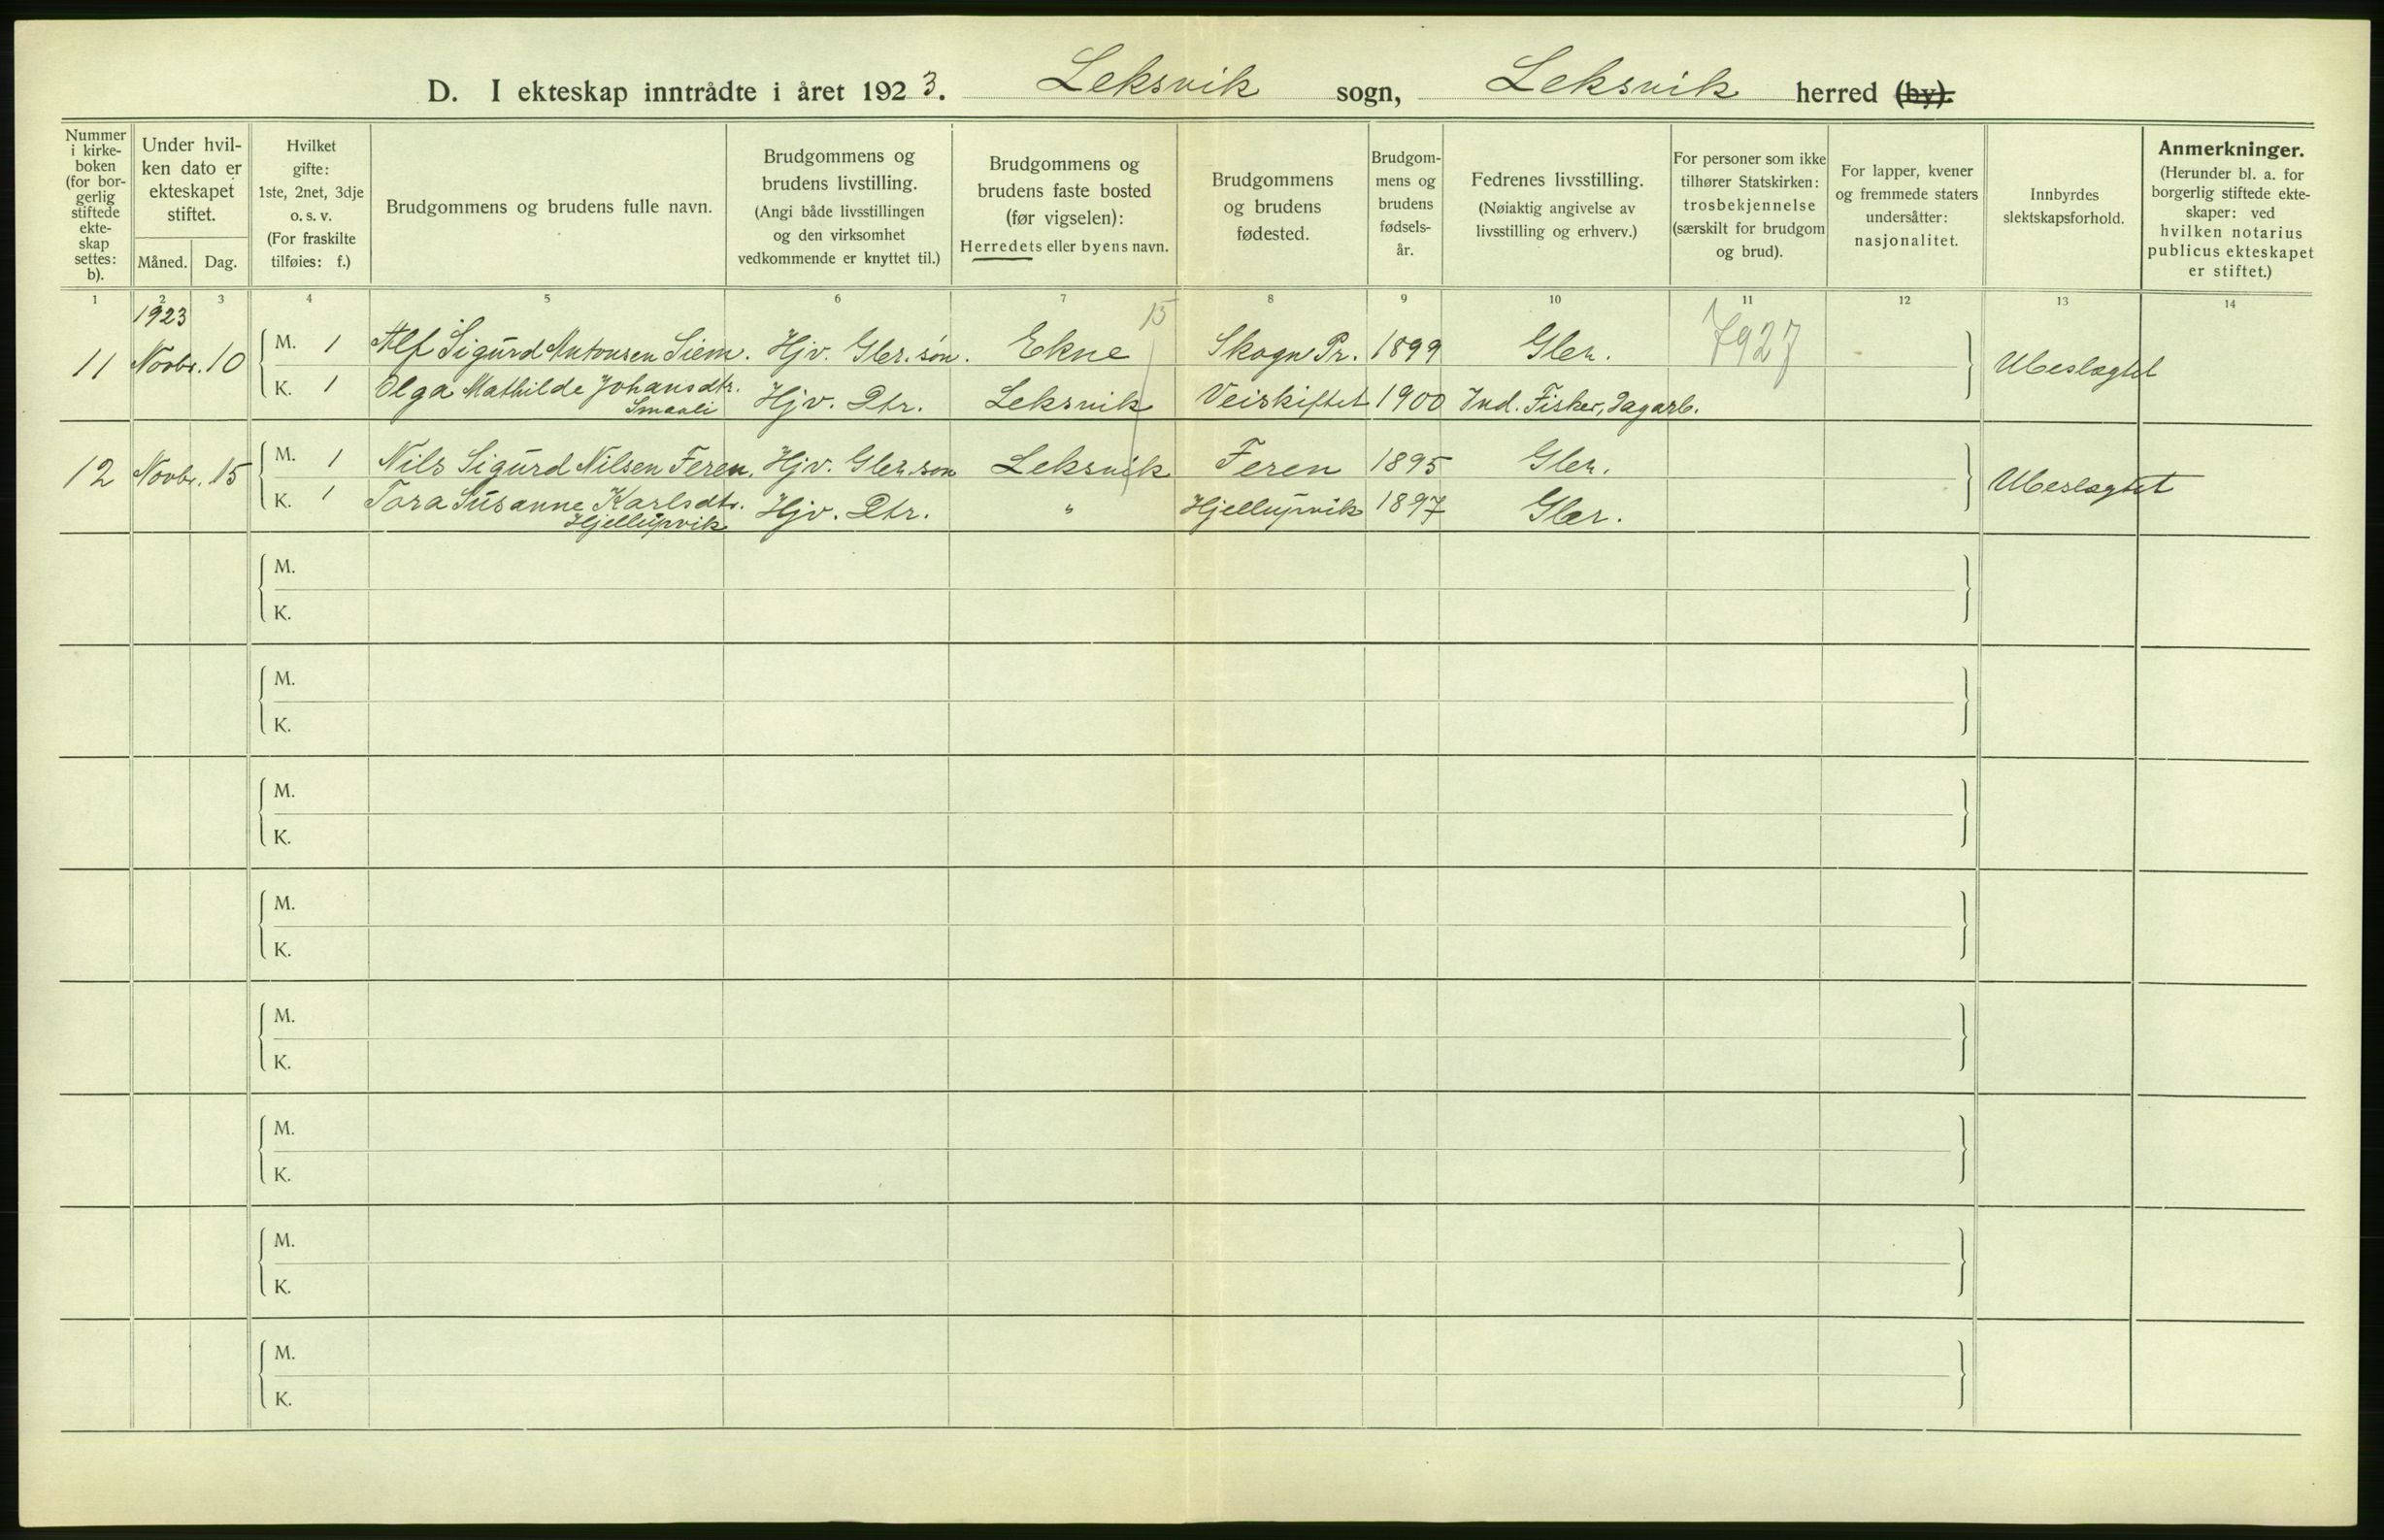 D. I ekteskap inntrådte i året 1923. Leksvik sogn, Leksvik herred (by).
Nummer i kirke- boken (for bor- gerlig stiftede ekte- skap settes: b).
Under hvil- ken dato er ekteskapet stiftet.
Måned. Dag.
Hvilket gifte: 1ste, 2net, 3dje o. s. v. (For fraskilte tilføies: f.)
Brudgommens og brudens fulle navn.
Brudgommens og brudens livstilling. (Angi både livsstillingen og den virksomhet vedkommende er knyttet til.)
Brudgommens og brudens faste bosted (før vigselen): Herredets eller byens navn.
Brudgommens og brudens fødested.
Brudgom- mens og brudens fødsels- år.
Fedrenes livsstilling. (Nøiaktig angivelse av livsstilling og erhverv.)
For personer som ikke tilhører Statskirken: trosbekjennelse (særskilt for brudgom og brud).
For lapper, kvener og fremmede staters undersåtter: nasjonalitet.
Innbyrdes slektskapsforhold.
Anmerkninger. (Herunder bl. a. for borgerlig stiftede ekte- skaper: ved hvilken notarius publicus ekteskapet er stiftet.)
1 2 3 4 5 6 7 8 9 10 11 12 13 14
1923
15
7927
11 Novbr. 10 M. 1 Alf Sigurd Antonsen Siem. Hjv. Gler. søn. Ekne Skogn Pr. 1899 Gler. Ubeslægtet
K. 1 Olga Mathilde Johansdtr. Smaali Hjv. Dtr. Leksvik Veiskiftet 1900 Ind. Fisker, Dagarb.
12 Novbr. 15 M. 1 Nils Sigurd Nilsen Feren. Hjv. Gler. søn Leksvik Feren 1895 Gler. Ubeslægtet
K. 1 Tora Susanne Karlsdtr. Hjellupvik Hjv. Dtr. " Hjellupvik 1897 Gler.
M.
K.
M.
K.
M.
K.
M.
K.
M.
K.
M.
K.
M.
K.
M.
K.